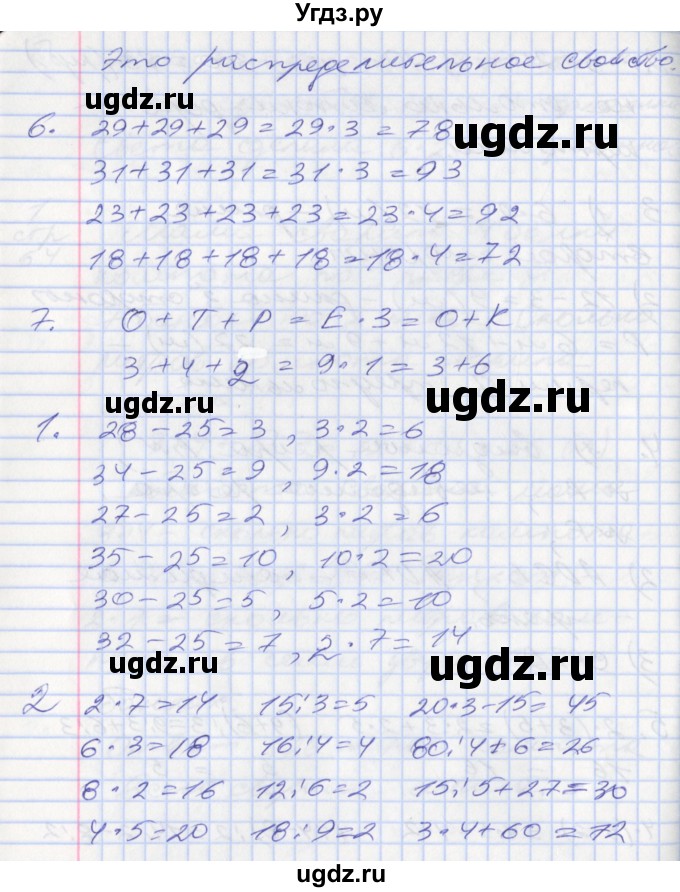 Угдз.ру
Это распределительное свойство.
ugdz.ru
ugdz.ru
6. 29+29+29=29·3=78
31+31+31=31·3=93
23+23+23+23=23·4=92
18+18+18+18=18·4=72
7. О+Т+Р=Е·3=О+К
3+4+2=9·1=3+6
ugdz.ru
ugdz.ru
1. 28-25=3, 3·2=6
34-25=9, 9·2=18
27-25=2, 3·2=6
35-25=10, 10·2=20
30-25=5, 5·2=10
32-25=7, 2·7=14
ugdz.ru
ugdz.ru
2 2·7=14 15:3=5 20·3-15=45
6·3=18 16:4=4 80:4+6=26
8·2=16 12:6=2 15:5+27=30
4·5=20 18:9=2 3·4+60=72
ugdz.ru
ugdz.ru